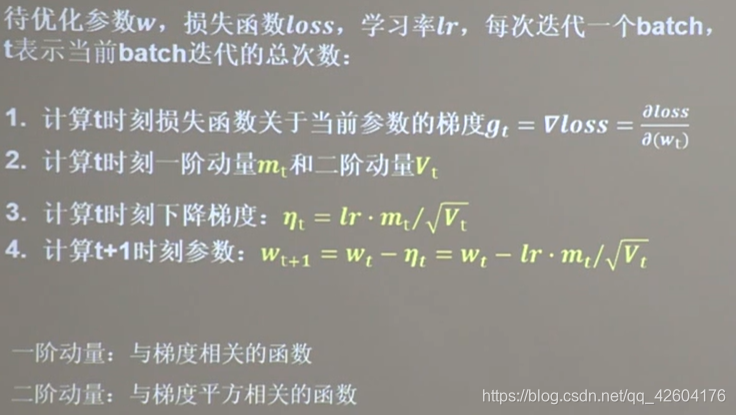 待优化参数w，损失函数loss，学习率lr，每次迭代一个batch，
t表示当前batch迭代的总次数：
1. 计算t时刻损失函数关于当前参数的梯度gₜ = ∇loss = ∂loss/∂(wₜ)
2. 计算t时刻一阶动量mₜ和二阶动量Vₜ
3. 计算t时刻下降梯度：ηₜ = lr · mₜ/√Vₜ
4. 计算t+1时刻参数：wₜ₊₁ = wₜ − ηₜ = wₜ − lr · mₜ/√Vₜ
一阶动量：与梯度相关的函数
二阶动量：与梯度平方相关的函数
https://blog.csdn.net/qq_42604176